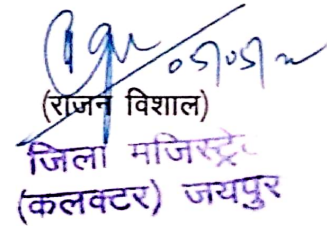 05/05/22
(राजन विशाल)
जिला मजिस्ट्रे
(कलक्टर) जयपुर